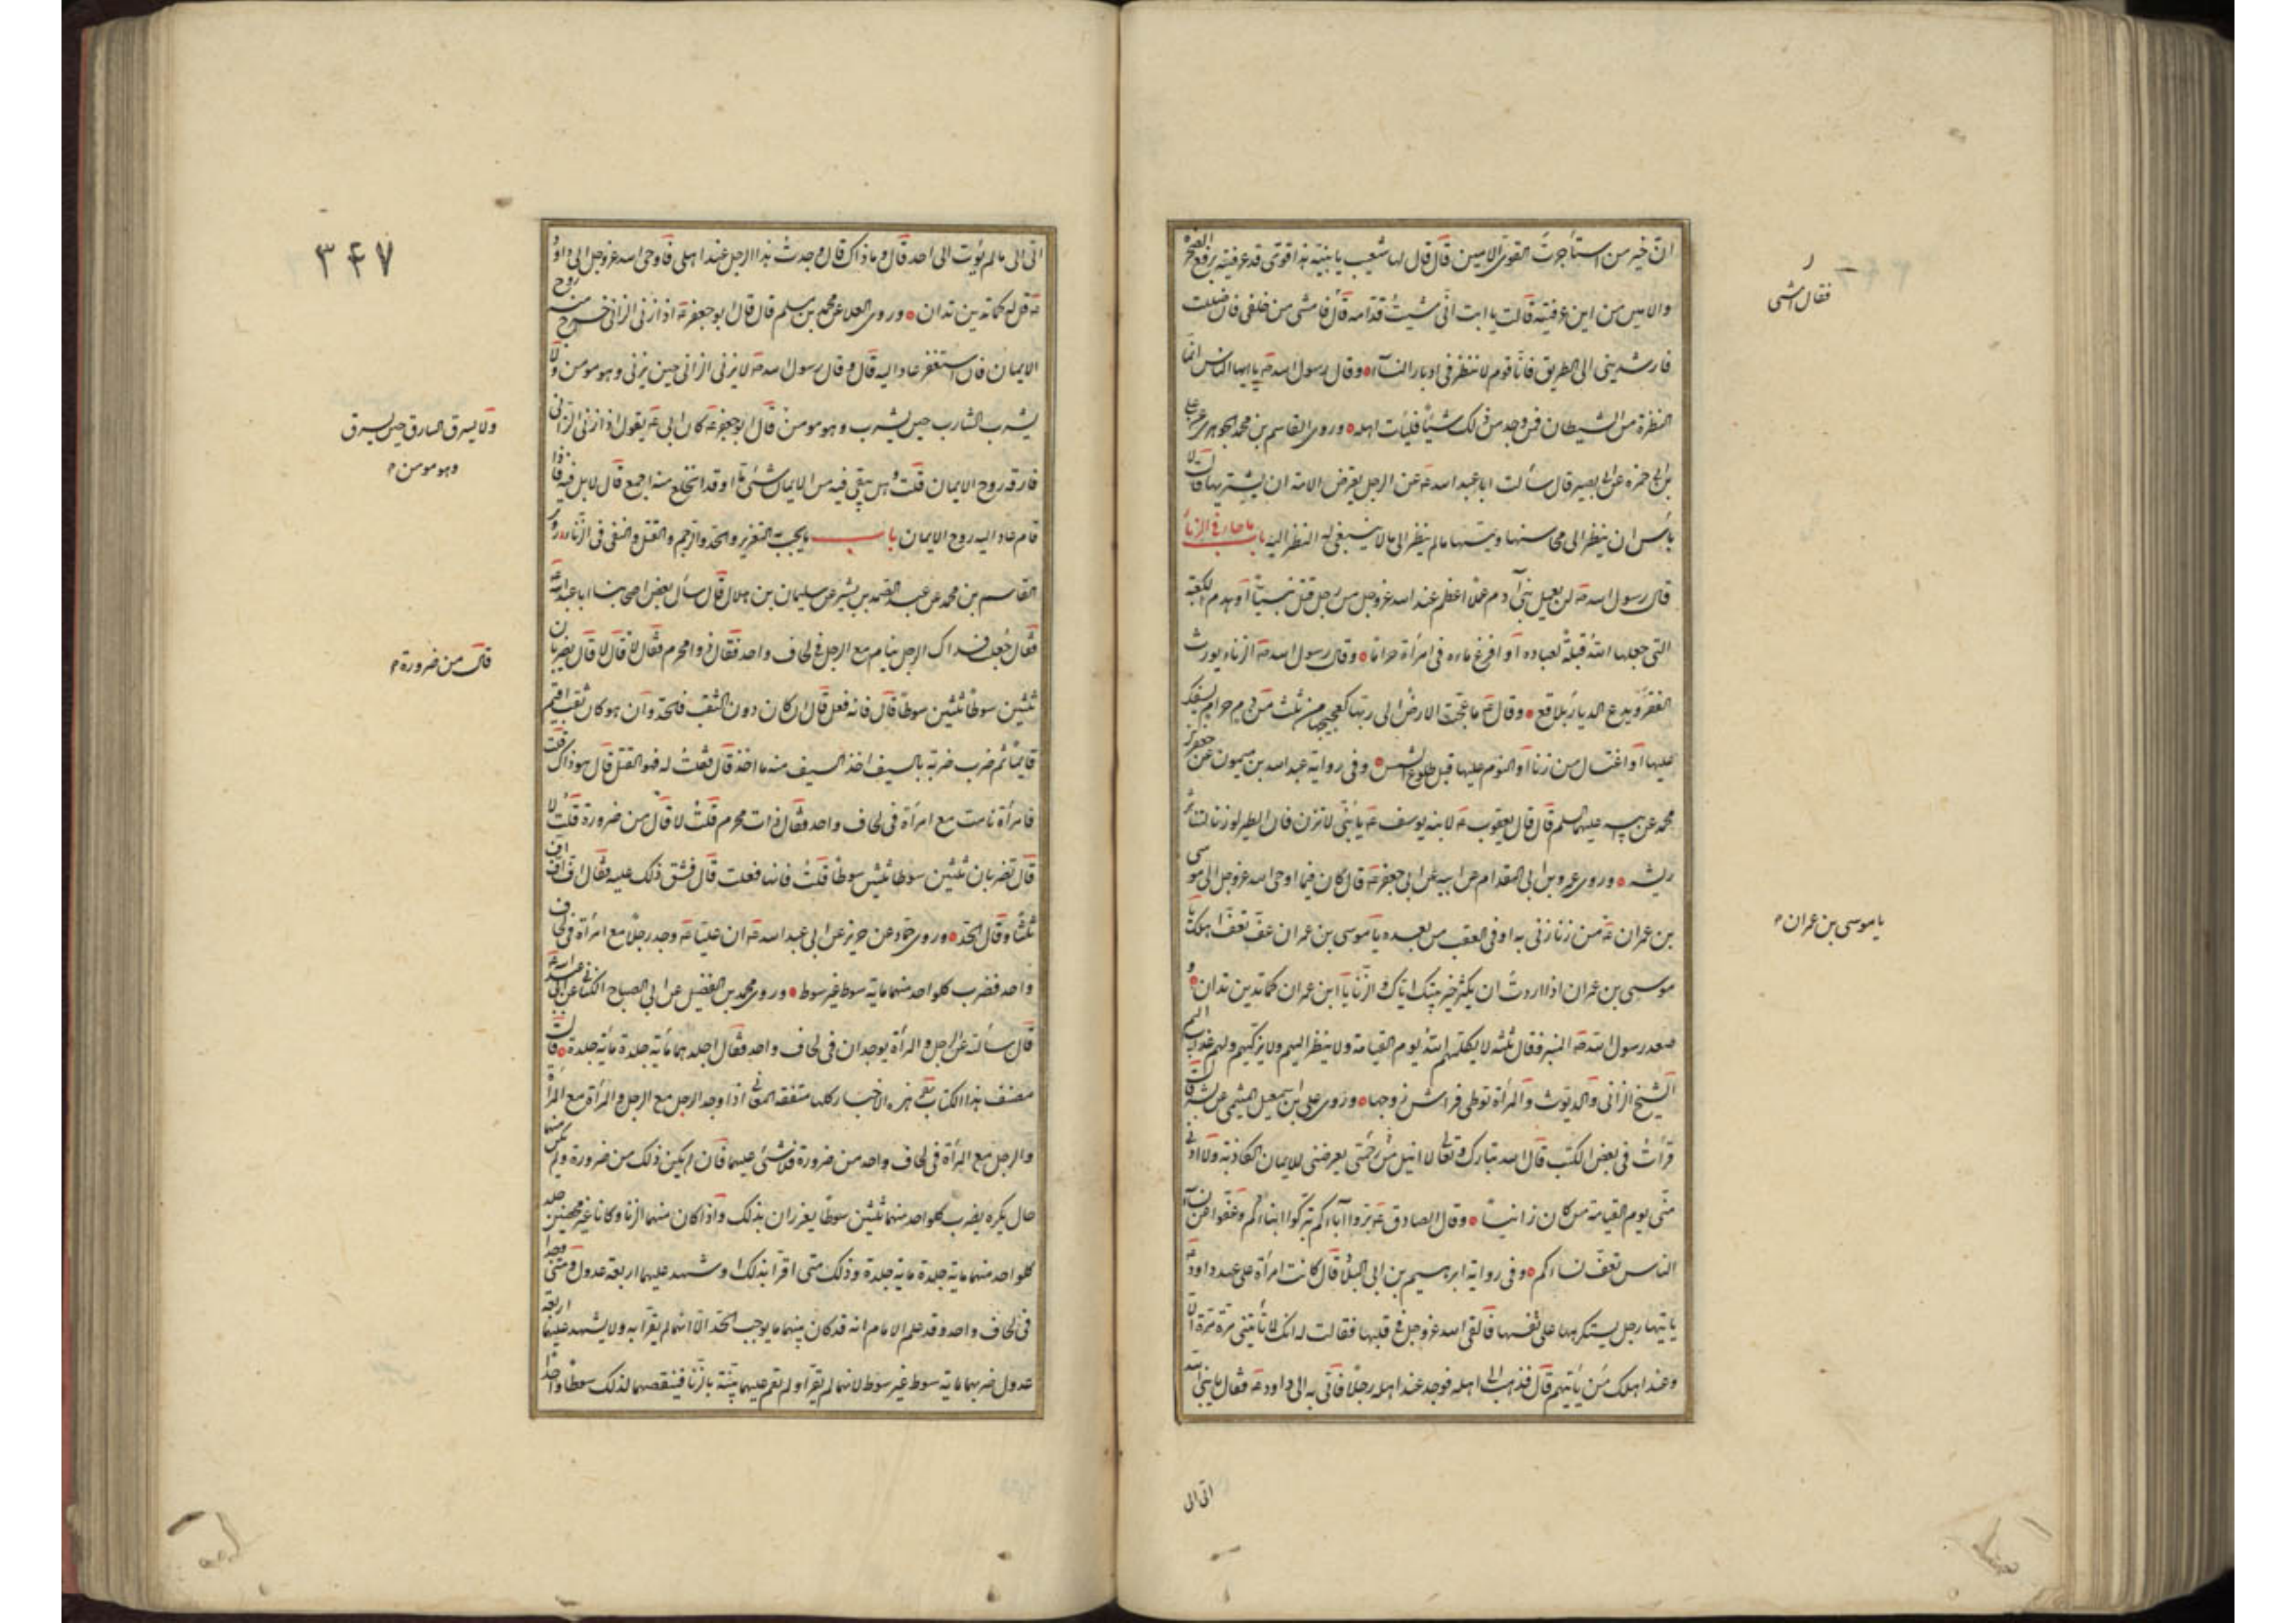 ان خير من استأجرت القوى الامين قال قال لها شعيب يا بنية هذا قوى قد عرفتيه برفع الصخرة
والامين من اين عرفتيه قالت يا ابت انى مشيت قدامه قال فامشى من خلفى فان ضللت
فارشدينى الى الطريق فانا قوم لا ننظر فى ادبار النساء وقال رسول الله صه يا ايها الناس انما
النظرة من الشيطان فمن وجد من ذلك شيئا فليات اهله وروى القاسم بن محمد الجوهرى عن على
بن ابى حمزه عن ابى بصير قال سألت ابا عبد الله عه عن الرجل يعترض الامة ان يشتريها قال لا
بأس ان ينظر الى محاسنها ويمسها ما لم ينظر الى ما لا ينبغى له النظر اليه باب ما جاء فى الزنا
قال رسول الله صه لن يعمل بنى آدم عملا اعظم عند الله عز وجل من رجل قتل نبيا او هدم الكعبة
التى جعلها الله قبلة لعباده او افرغ ماءه فى امرأة حراما وقال رسول الله صه الزناء يورث
الفقر ويدع الديار بلاقع وقال عه ما عجت الارض الى ربها كعجيجها من ثلث من دم حرام يسفك
عليها او اغتسال من زنا او النوم عليها قبل طلوع الشمس وفى رواية عبد الله بن ميمون عن جعفر بن
محمد عن ابيه عليهما السلم قال قال يعقوب عه لابنه يوسف عه يا بنى لا تزن فان الطير لو زنا لتناثر
ريشه وروى عمرو بن ابى المقدام عن ابيه عن ابى جعفر عه قال كان فيما اوحى الله عز وجل الى موسى
بن عمران عه من زنا زنى به او فى العقب من بعده يا موسى بن عمران عف تعف اهلك يا
موسى بن عمران اذا اردت ان يكثر خير بيتك اياك والزنا يا ابن عمران كما تدين تدان و
صعد رسول الله صه المنبر فقال ثلثة لا يكلمهم الله يوم القيامة ولا ينظر اليهم ولا يزكيهم ولهم عذاب اليم
الشيخ الزانى والديوث والمرأة توطى فراش زوجها وروى على بن اسمعيل الميثمى عن بشير قال
قرأت فى بعض الكتب قال الله تبارك وتعالى لا انيل رحمتى من يعرضنى للايمان الكاذبة ولا ادنى
منى يوم القيامة من كان زانيا وقال الصادق عه بروا آباءكم تبركم ابناءكم وعفوا عن نساء
الناس تعف نساءكم وفى رواية ابرهيم بن ابى البلاد قال كانت امرأة على عهد داود عه
ياتيها رجل يستكرهها على نفسها فالقى الله عز وجل فى قلبها فقالت له انك لا تأتينى مرة الا
وعند اهلك من يأتيهم قال فذهب الى اهله فوجد عند اهله رجلا فأتى به الى داود عه فقال يا نبى الله
فقال امشى
يا موسى بن عمران
اتى الى
٣٤٧
اتى الى ما لم يؤت الى احد قال وما ذاك قال وجدت هذا الرجل عند اهلى فاوحى الله عز وجل الى داود
عه قل له كما تدين تدان وروى العلا عن محمد بن مسلم قال قال ابو جعفر عه اذا زنى الزانى خرج منه روح
الايمان فان استغفر عاد اليه قال وقال رسول الله صه لا يزنى الزانى حين يزنى وهو مومن ولا
يشرب الشارب حين يشرب وهو مومن قال ابو جعفر عه كان ابى عه يقول اذا زنى الزانى
فارقه روح الايمان قلت وهل يبقى فيه من الايمان شئ ما او قد انخلع منه اجمع قال لا بل فيه فاذا
قام عاد اليه روح الايمان باب ما يجب به التعزير والحد والرجم والقتل والنفى فى الزنا روى
القاسم بن محمد عن عبد الصمد بن بشير عن سليمان بن هلال قال سأل بعض اصحابنا ابا عبد الله عه
فقال جعلت فداك الرجل ينام مع الرجل فى لحاف واحد فقال ذو محرم فقال لا قال لا قال يضربان
ثلثين سوطا ثلثين سوطا قال فانه فعل قال ان كان دون الثقب فالحد وان هو كان ثقب اقيم
قايما ثم ضرب ضربة بالسيف اخذ السيف منه ما اخذ قال فقلت له فهو القتل قال هو ذاك قلت
فامرأة نامت مع امرأة فى لحاف واحد فقال ذات محرم قلت لا قال من ضرورة قلت لا
قال تضربان ثلثين سوطا ثلثين سوطا قلت فانها فعلت قال فشق ذلك عليه فقال اف اف اف
ثلثا وقال الحد وروى حماد عن حريز عن ابى عبد الله عه ان عليا عه وجد رجلا مع امرأة فى لحاف
واحد فضرب كل واحد منهما ماية سوط غير سوط وروى محمد بن الفضيل عن ابى الصباح الكنانى عن ابى عبد الله عه
قال سألته عن الرجل والمرأة يوجدان فى لحاف واحد فقال اجلدهما ماية جلدة ماية جلدة قال
مصنف هذا الكتاب هذه الاخبار كلها متفقة المعانى اذا وجد الرجل مع الرجل والمرأة مع المرأة
والرجل مع المرأة فى لحاف واحد من ضرورة فلا شئ عليهما فان لم يكن ذلك من ضرورة ولم يكن منهما
حال يكره يضرب كل واحد منهما ثلثين سوطا يعزران بذلك واذا كان منهما الزنا وكانا غير محصنين جلد
كل واحد منهما ماية جلدة ماية جلدة وذلك متى اقرا بذلك او شهد عليهما اربعة عدول ومتى وجدا
فى لحاف واحد وقد علم الامام انه قد كان بينهما ما يوجب الحد الا انهما لم يقرا به ولا يشهد عليهما اربعة
عدول ضربهما ماية سوط غير سوط لانهما لم يقرا ولم تقم عليهما بينة بالزنا فينقصهما لذلك سوطا واحدا
ولا يسرق السارق حين يسرق
وهو مومن
قال من ضرورة